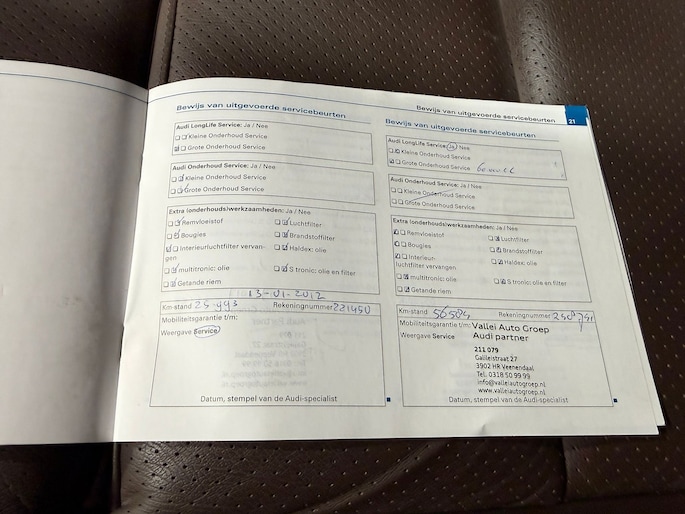 Bewijs van uitgevoerde servicebeurten
Audi LongLife Service: Ja / Nee
Kleine Onderhoud Service
Grote Onderhoud Service
Audi Onderhoud Service: Ja / Nee
Kleine Onderhoud Service
Grote Onderhoud Service
Extra (onderhouds)werkzaamheden: Ja / Nee
Remvloeistof Luchtfilter
Bougies Brandstoffilter
Interieurluchtfilter vervan- Haldex: olie
gen
multitronic: olie S tronic: olie en filter
Getande riem
13-01-2012
Km-stand 25-993 Rekeningnummer 221450
Mobiliteitsgarantie t/m:
Weergave Service
Datum, stempel van de Audi-specialist
Bewijs van uitgevoerde servicebeurten 21
Bewijs van uitgevoerde servicebeurten
Audi LongLife Service: Ja / Nee
Kleine Onderhoud Service
Grote Onderhoud Service
Audi Onderhoud Service: Ja / Nee
Kleine Onderhoud Service
Grote Onderhoud Service
Extra (onderhouds)werkzaamheden: Ja / Nee
Remvloeistof Luchtfilter
Bougies Brandstoffilter
Interieur- Haldex: olie
luchtfilter vervangen
multitronic: olie S tronic: olie en filter
Getande riem
Km-stand Rekeningnummer
Mobiliteitsgarantie t/m: Vallei Auto Groep
Weergave Service Audi partner
211 079
Galileistraat 27
3902 HR Veenendaal
Tel. 0318 50 99 99
info@valleiautogroep.nl
www.valleiautogroep.nl
Datum, stempel van de Audi-specialist